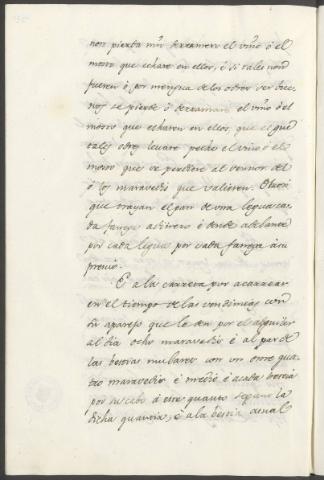 non pierda nin derramen el vino ó el
mosto que echare en ellos, é si tales non
fueren ó por mengua de los odres ser bue
nos se pierde ó derramare el vino ó el
mosto que echaren en ellos, que el que
tales odres levare peche el vino ó el
mosto que se perdiere al sennor del
ó los maravedis que valieren. Otrosi
que trayan el pan de una legua ca
da fanega a dineros é dende adelante
por cada legua por cada fanega á su
precio.
E a la carreta por acarrear
en el tiempo de las vendimias con
su aparejo que le den por el alquiler
al dia ocho maravedis é al par de
las bestias mulares con un ome qua
tro maravedis é medio é a cada bestia
por su cabo á este quanto segunt la
dicha quantia, é a la bestia asnal